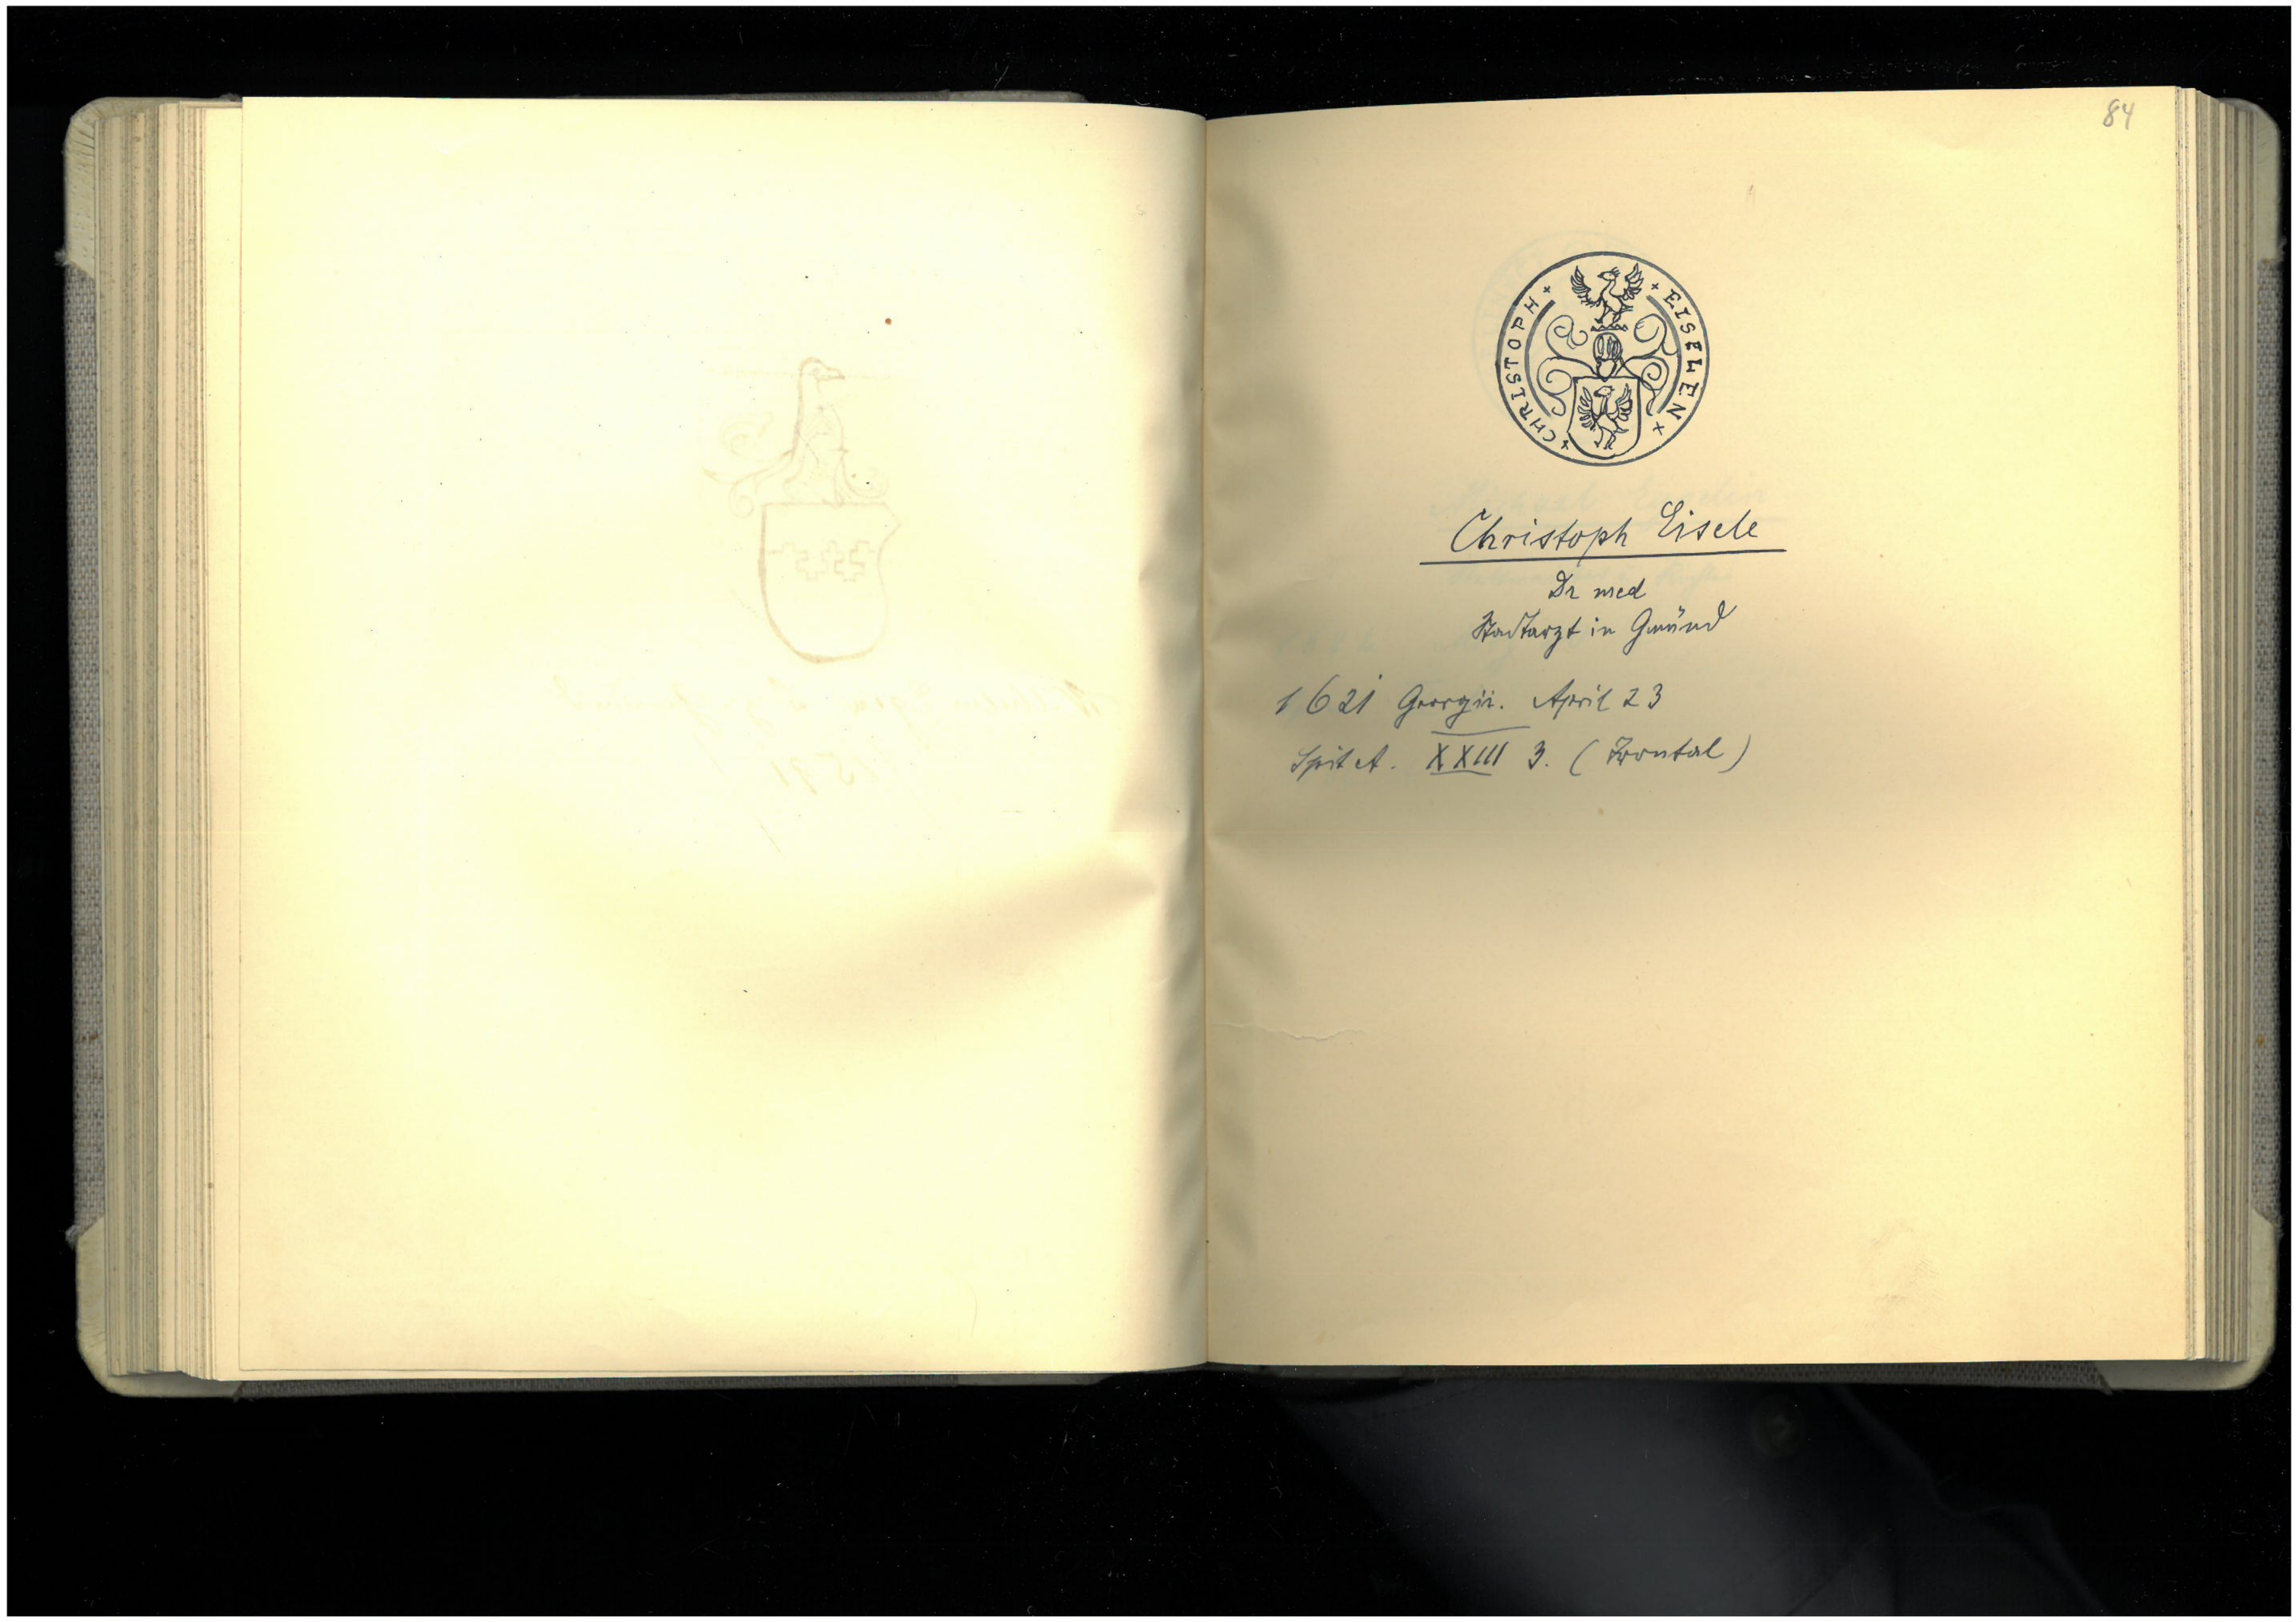 84
+ CHRISTOPH + + EISELEN +
Christoph Eisele
Dr med
Stadtarzt in Gmünd
1621 Georgii. April 23
Spit A. XXIII 3. (Zwontal)